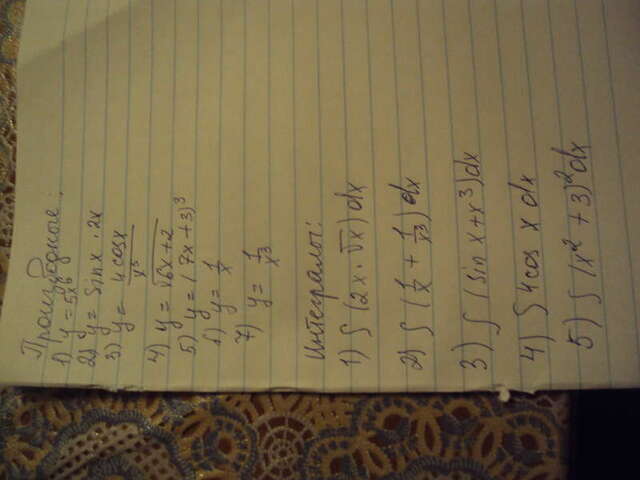 Производные:
1) y = 5x⁶
2) y = sin x · 2x
3) y = 4cos x / x⁵
4) y = √(6x + 2)
5) y = (7x + 3)³
6) y = 1/x
7) y = 1/x³
Интегралы:
1) ∫ (2x · √x) dx
2) ∫ (1/x + 1/x³) dx
3) ∫ (sin x + x³) dx
4) ∫ 4cos x dx
5) ∫ (x² + 3)² dx